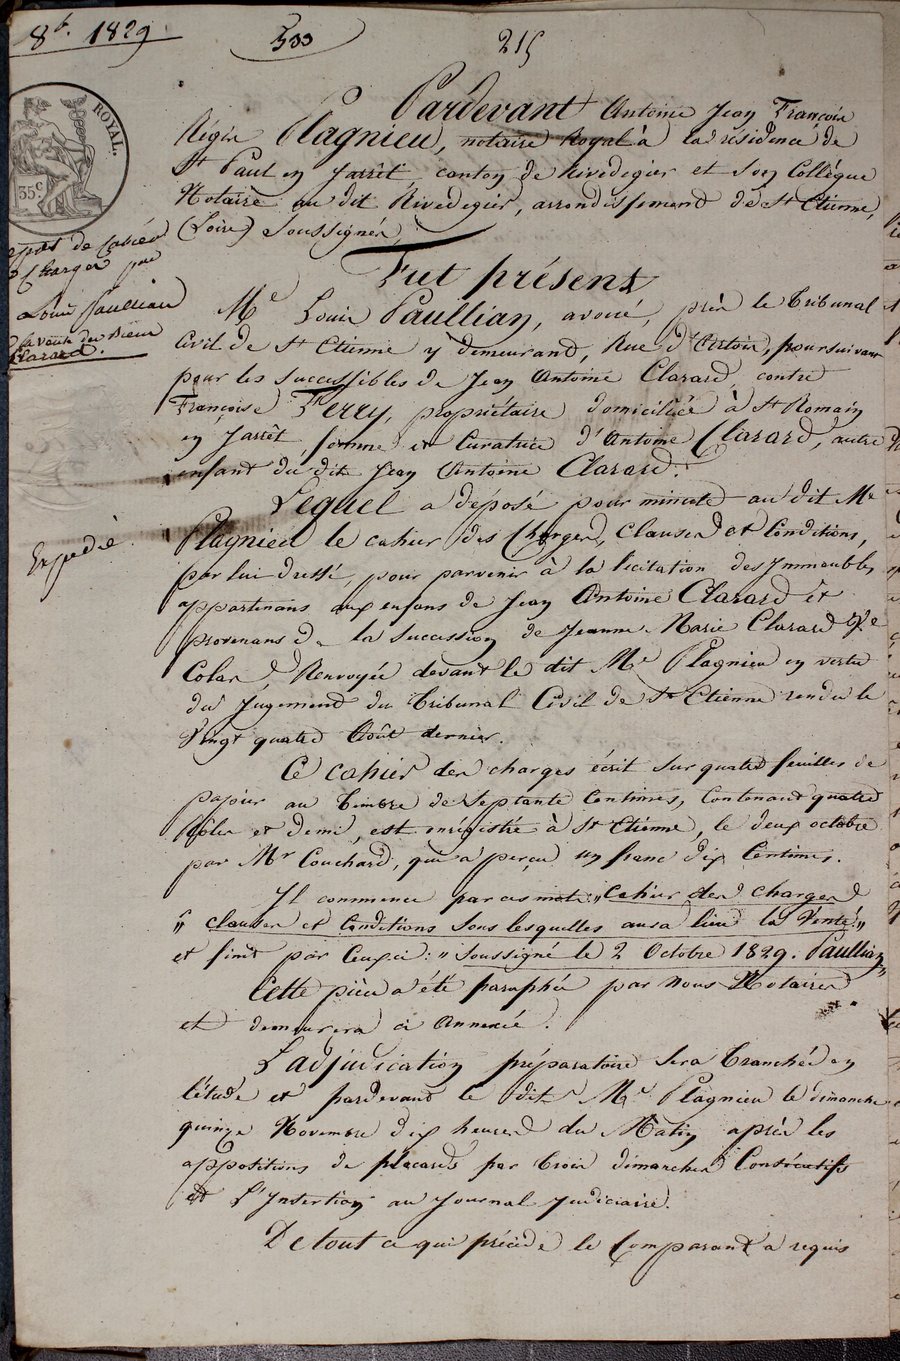 8b. 1829
533
215
ROYAL.
35c
Depot de Cahier
de Charges par
Louis Paullian
la vente des Biens
Clarard.
Expedié
Pardevant Antoine Jean François
Régis Plagnieu, notaire Royal à la résidence de
St Paul en Jarrêt canton de Rivedegier et son Collègue
Notaire au dit Rivedegier, arrondissement de St Etienne,
(Loire) Soussignés,
Fut présent
Me Louis Paullian, avoué, près le Tribunal
Civil de St Etienne y demeurant, Rue d'Artois, poursuivant
pour les successibles de Jean Antoine Clarard, contre
Françoise Ferry, propriétaire domiciliée à St Romain
en Jarrêt, femme et Curatrice d'Antoine Clarard, autre
enfant du dit Jean Antoine Clarard.
Lequel a déposé pour minute au dit Me
Plagnieu le cahier des Charges, Clauses et Conditions,
par lui dressé, pour parvenir à la licitation des Immeubles
appartenans aux enfans de Jean Antoine Clarard et
provenans de la Succession de Jeanne Marie Clarard Ve
Colas, Renvoyée devant le dit Me Plagnieu en vertu
du Jugement du Tribunal Civil de St Etienne rendu le
Vingt quatre Août dernier.
Ce cahier des charges écrit sur quatre feuilles de
papier au timbre de Septante Centimes, Contenant quatre
Rôles et demi, est enrégistré à St Etienne, le deux octobre
par Mr Couchard, qui a perçu un franc dix Centimes.
Il commence par ces mots: "Cahier des charges
" clauses et Conditions sous lesquelles aura lieu la Vente:"
et finit par Ceux ci: " Soussigné le 2 Octobre 1829. Paullian"
Cette pièce a été paraphée par Nous Notaires
et demeurera ci Annexée.
L'adjudication préparatoire sera tranchée en
l'étude et pardevant le dit Me Plagnieu le dimanche
quinze Novembre dix heures du Matin après les
appositions de placards par trois dimanches Consécutifs
et L'Insertion au Journal Judiciaire.
De tout ce qui précède le Comparant a requis